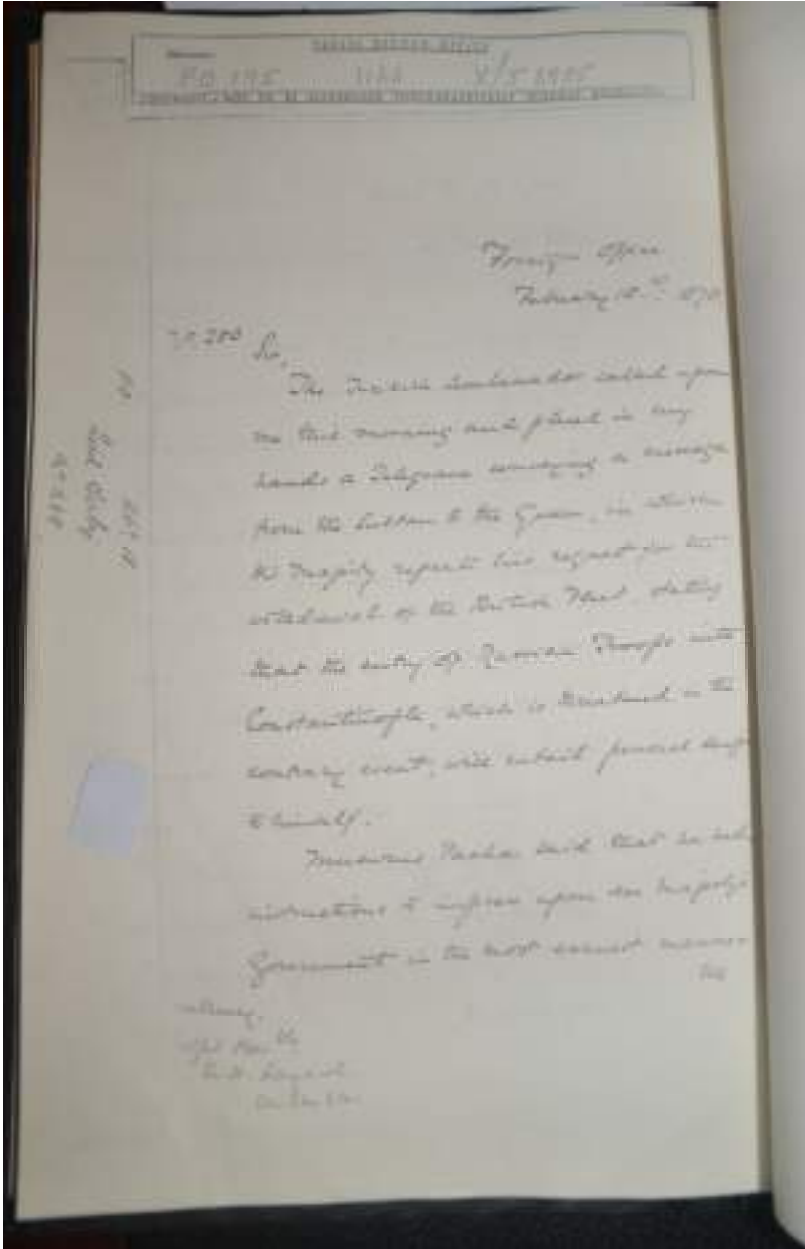 PUBLIC RECORD OFFICE
FO 195
Foreign Office
February
No. 200
Sir,
The Turkish Ambassador called upon
me this morning and placed in my
hands a Telegram conveying a message
from the Sultan to the Queen, in which
His Majesty repeats his request for the
withdrawal of the British Fleet, stating
that the entry of Russian Troops into
Constantinople, which is threatened in the
contrary event, will entail personal
to himself.
Musurus Pasha said that he had
instructions to impress upon Her Majesty's
Government in the most earnest manner
the
Rt. Hon.
Layard